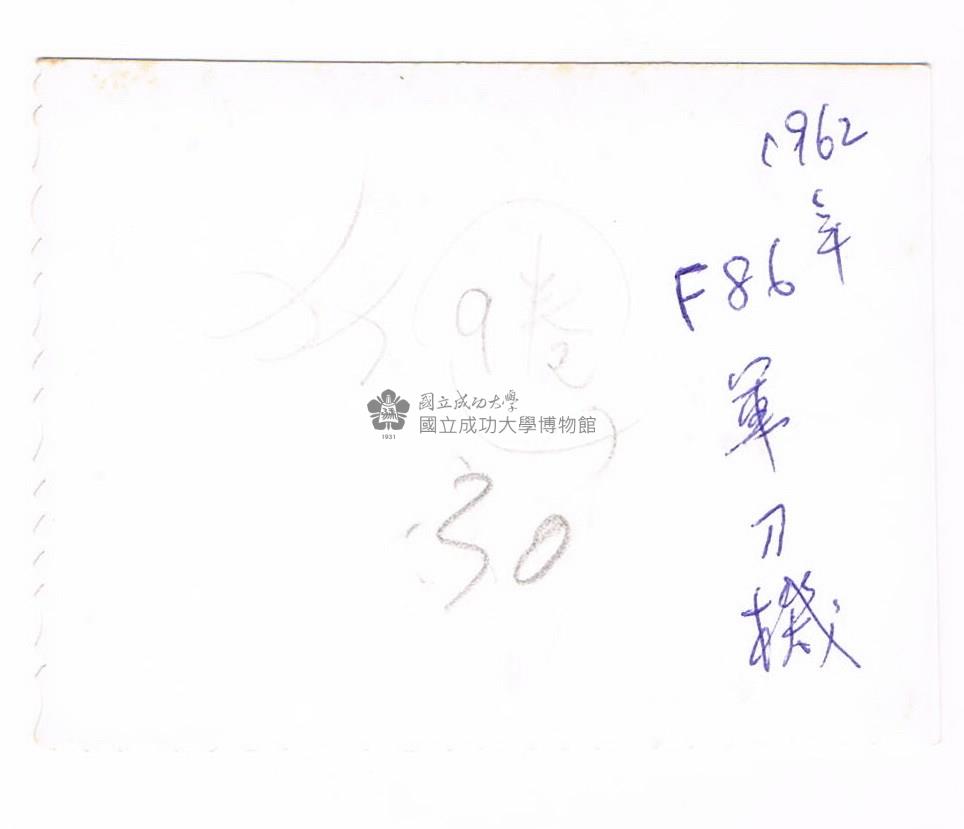 1962
年
F86
軍刀機
9卷
30
國立成功大學
國立成功大學博物館
1931